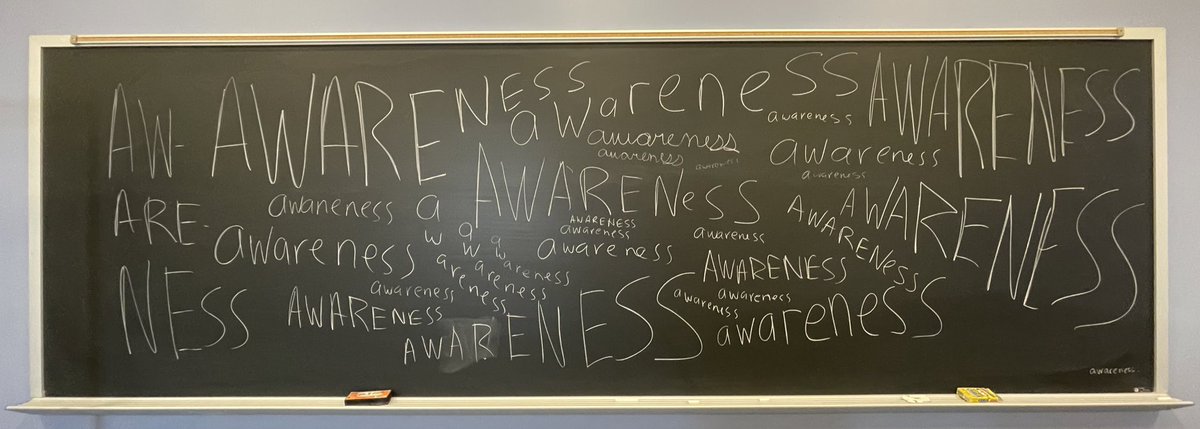 AW-
ARE-
NESS
AWARENESS
awareness
awareness
AWARENESS
awareness
awareness
awareness
awareness
awareness
AWARENESS
awaneness
awareness
awareness
awareness
awareness
AWARENESS
awareness
awareness
awareness
AWARENESS
AWARENESS
AWARENESS
awareness
awareness
AWARENESS
AWARENESS
awareness
awareness
awareness
awareness.